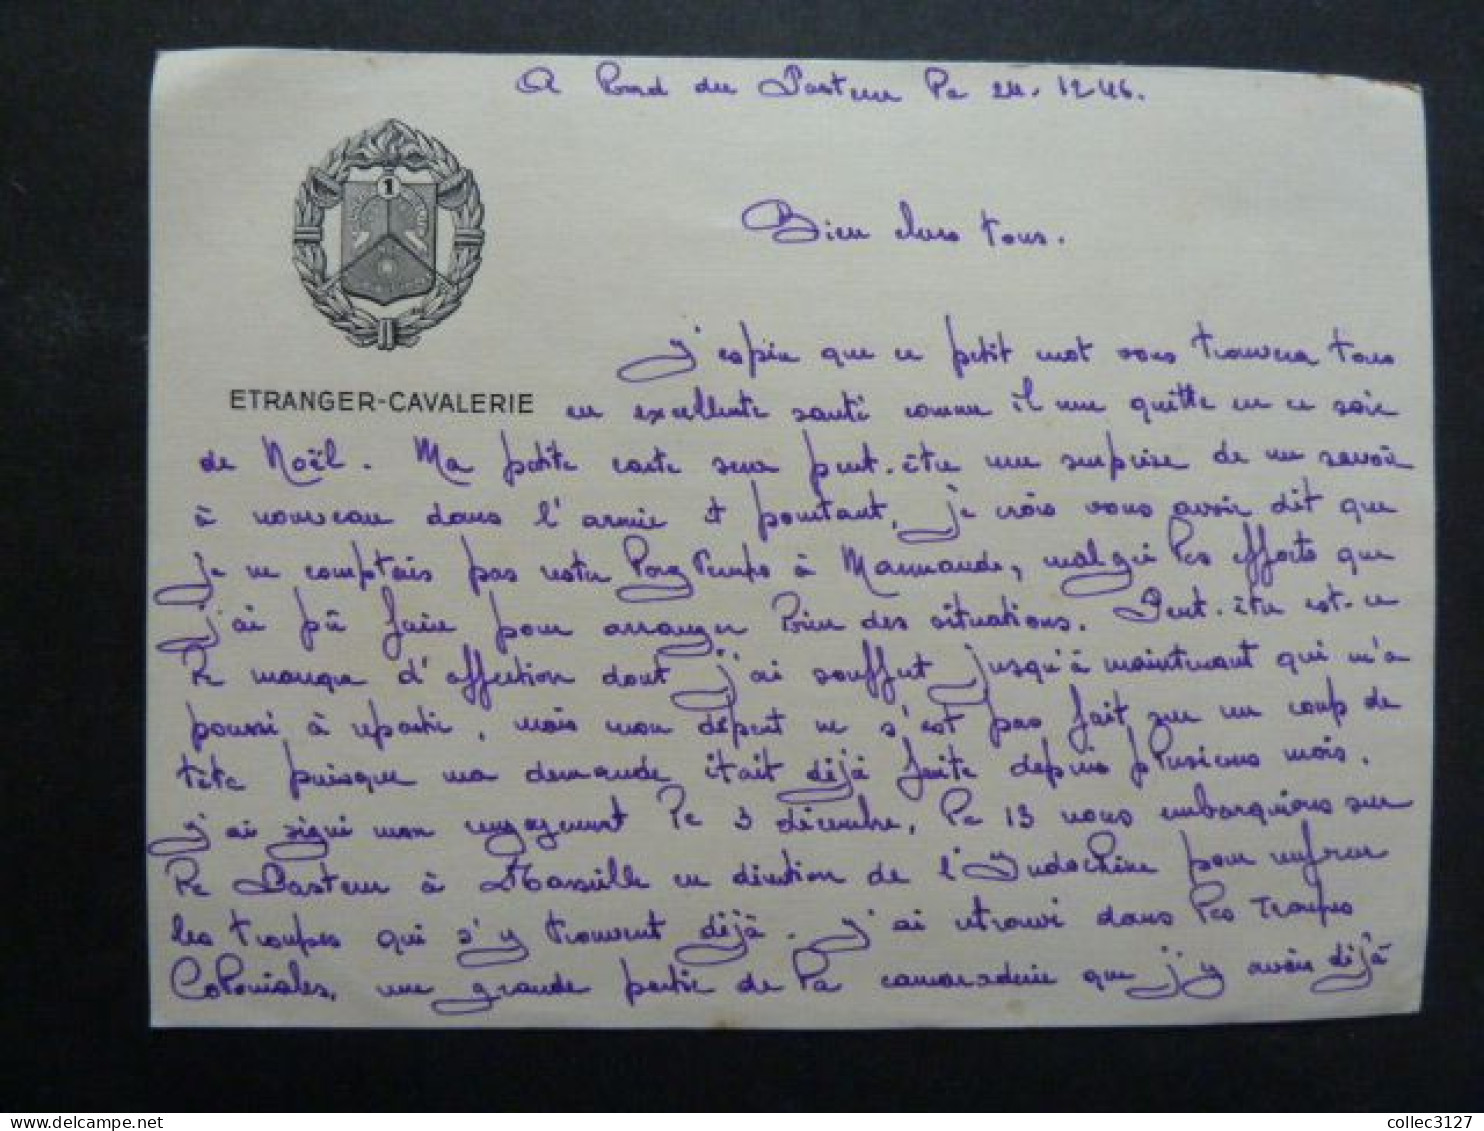 A bord du Pasteur le 24.12.46.
1
Bien chers tous.
J'espère que ce petit mot vous trouvera tous
ETRANGER-CAVALERIE
en excellente santé comme il me quitte en ce soir
de Noël. Ma petite carte sera peut-être une surprise de me savoir
à nouveau dans l'armée et pourtant, je crois vous avoir dit que
je ne comptais pas rester longtemps à Marmande, malgré les efforts que
j'ai pû faire pour arranger bien des situations. Peut-être est-ce
le manque d'affection dont j'ai souffert jusqu'à maintenant qui m'a
poussé à repartir, mais mon départ ne s'est pas fait sur un coup de
tête puisque ma demande était déjà faite depuis plusieurs mois.
J'ai signé mon engagement le 3 décembre, le 13 nous embarquions sur
le Pasteur à Marseille en direction de l'Indochine pour renforcer
les troupes qui s'y trouvent déjà. J'ai retrouvé dans les Troupes
Coloniales, une grande partie de la camaraderie que j'y avais déjà
collec3127